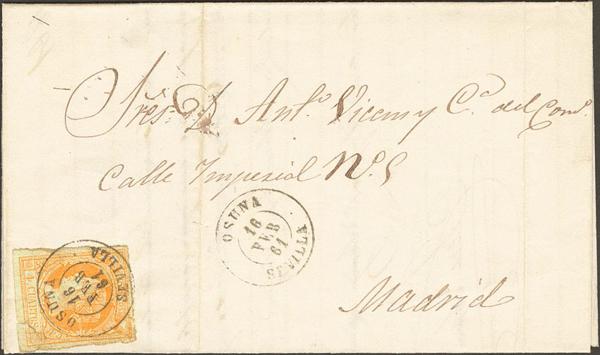 Sres. D. Ant.º Vicens y C.ª del Com.º
Calle Imperial N.º 5
OSUNA
16
FEB
61
SEVILLA
Madrid
OSUNA
16
FEB
61
SEVILLA